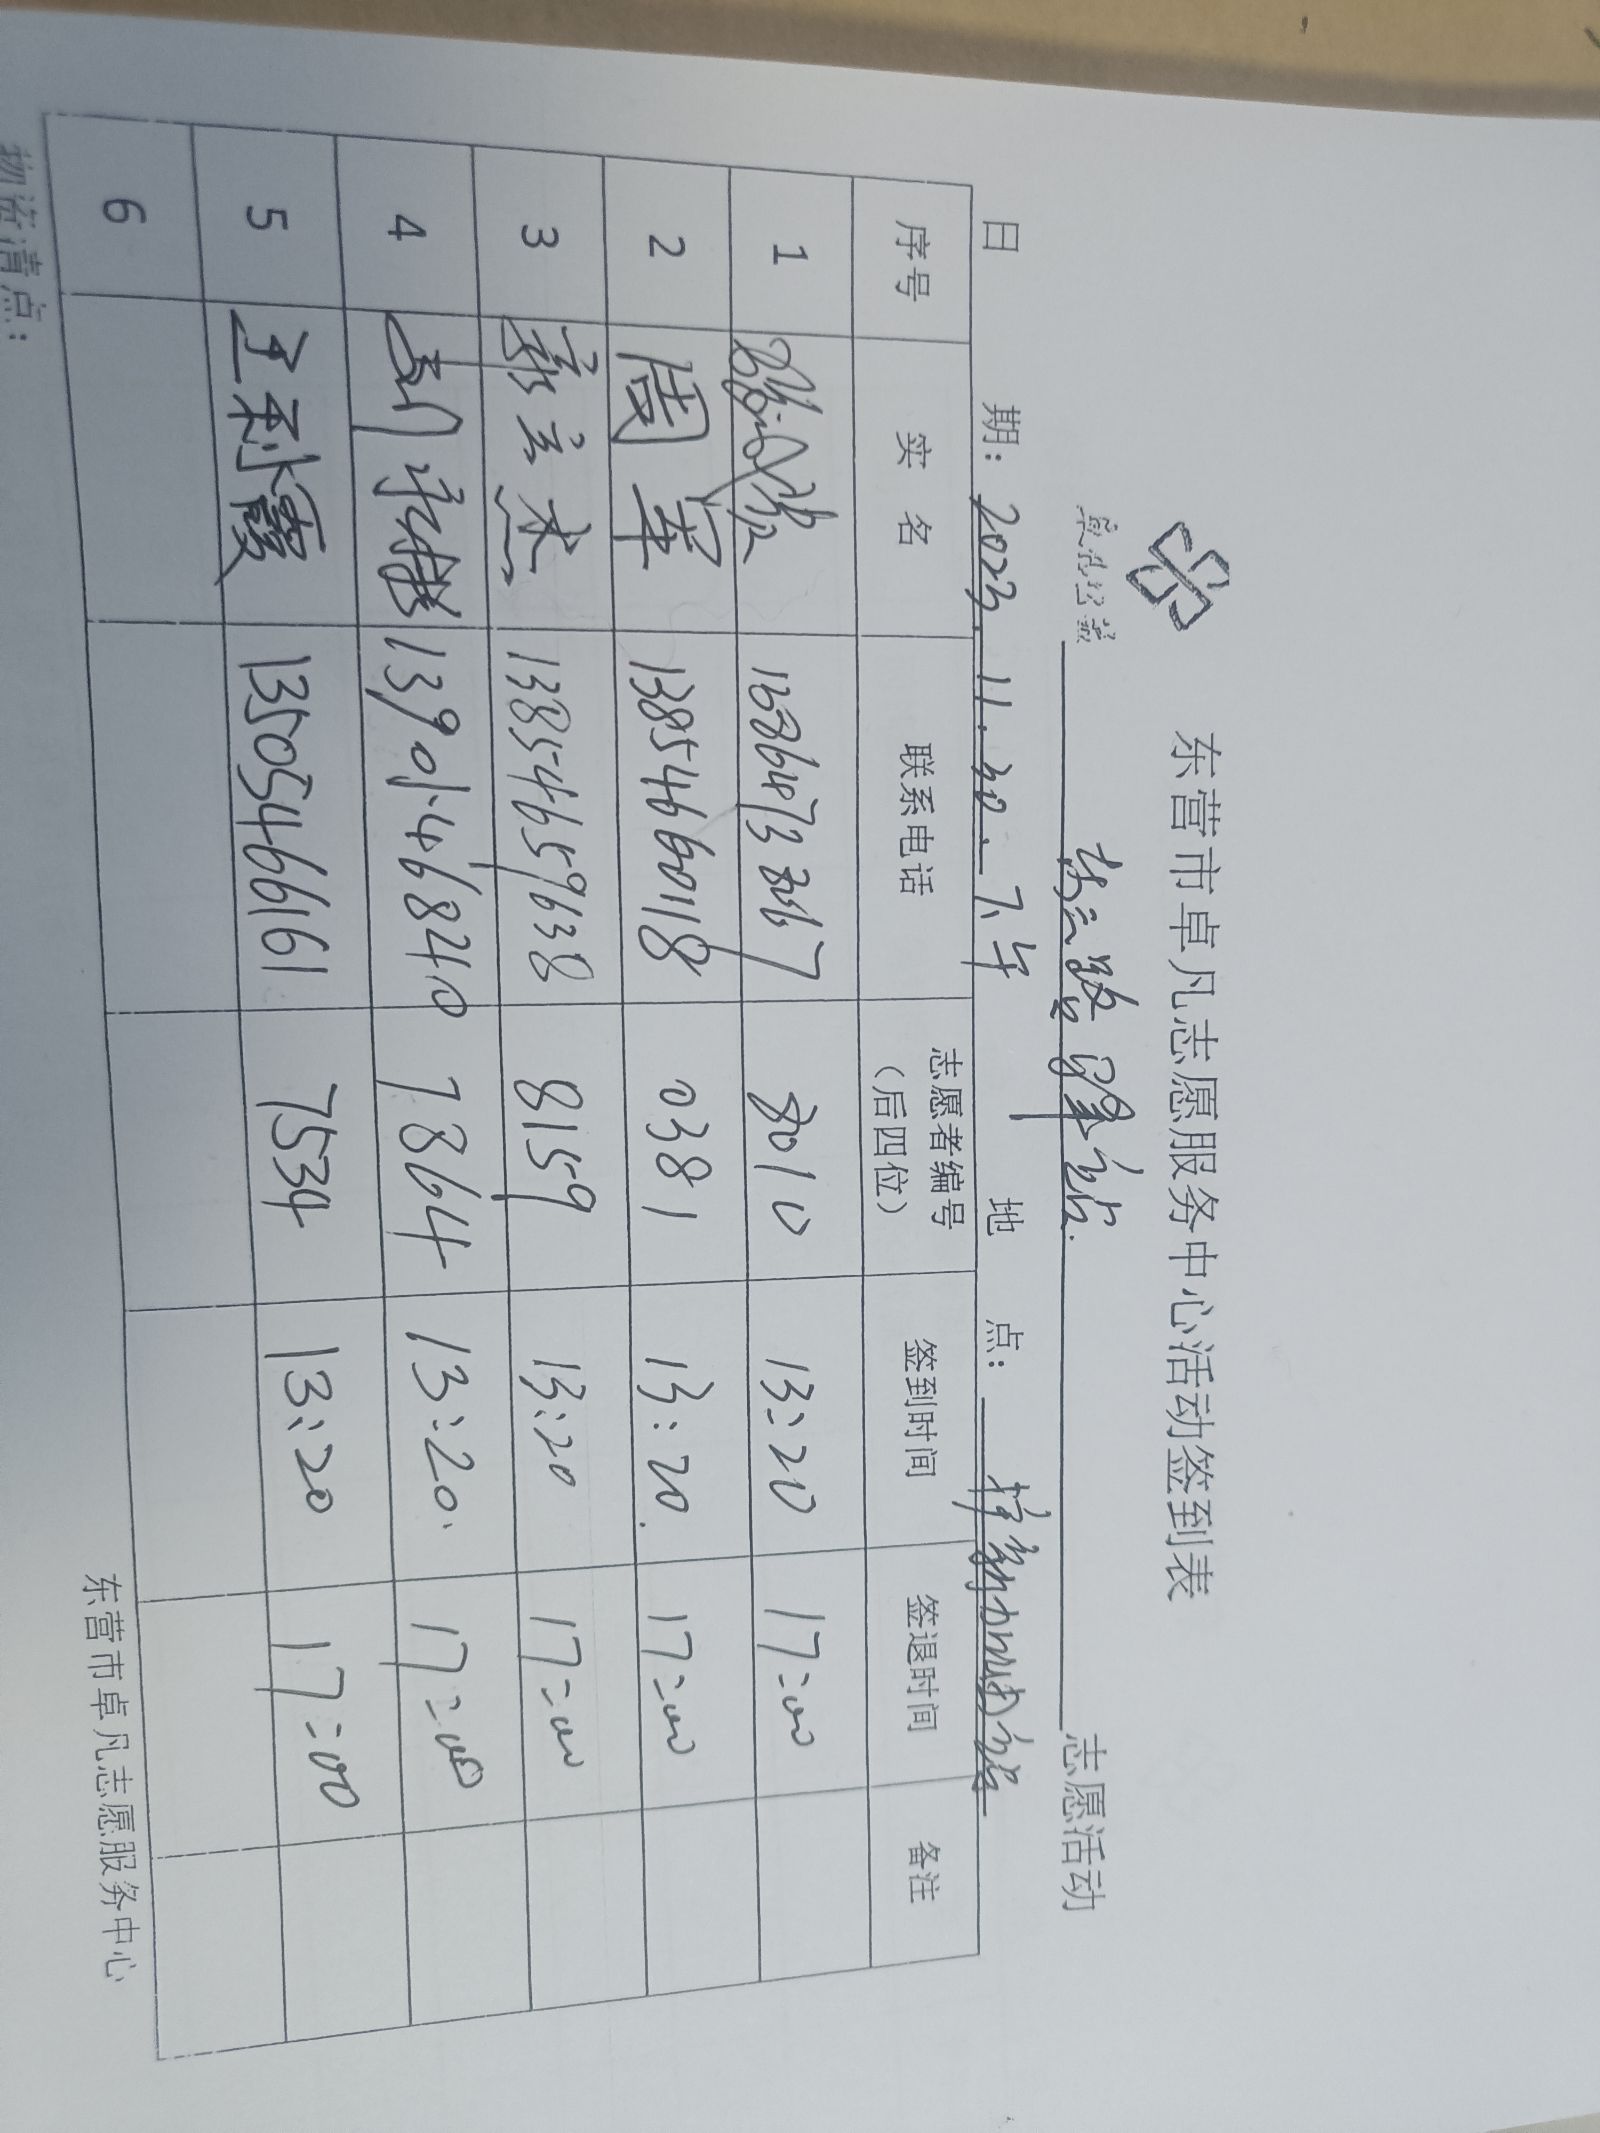 东营市卓凡志愿服务中心活动签到表
卓凡公益
志愿活动
日 期: 2023.11.30.下午 地 点:
序号 实 名 联系电话 志愿者编号（后四位） 签到时间 签退时间 备注
1 8010 13:20 17:00
2 周军 13854660118 0381 13:20. 17:00
3 13854659638 8159 13:20 17:00
4 13901468410 7864 13:20. 17:00
5 王利霞 13505466161 7534 13:20 17:00
6
东营市卓凡志愿服务中心
物资清点: